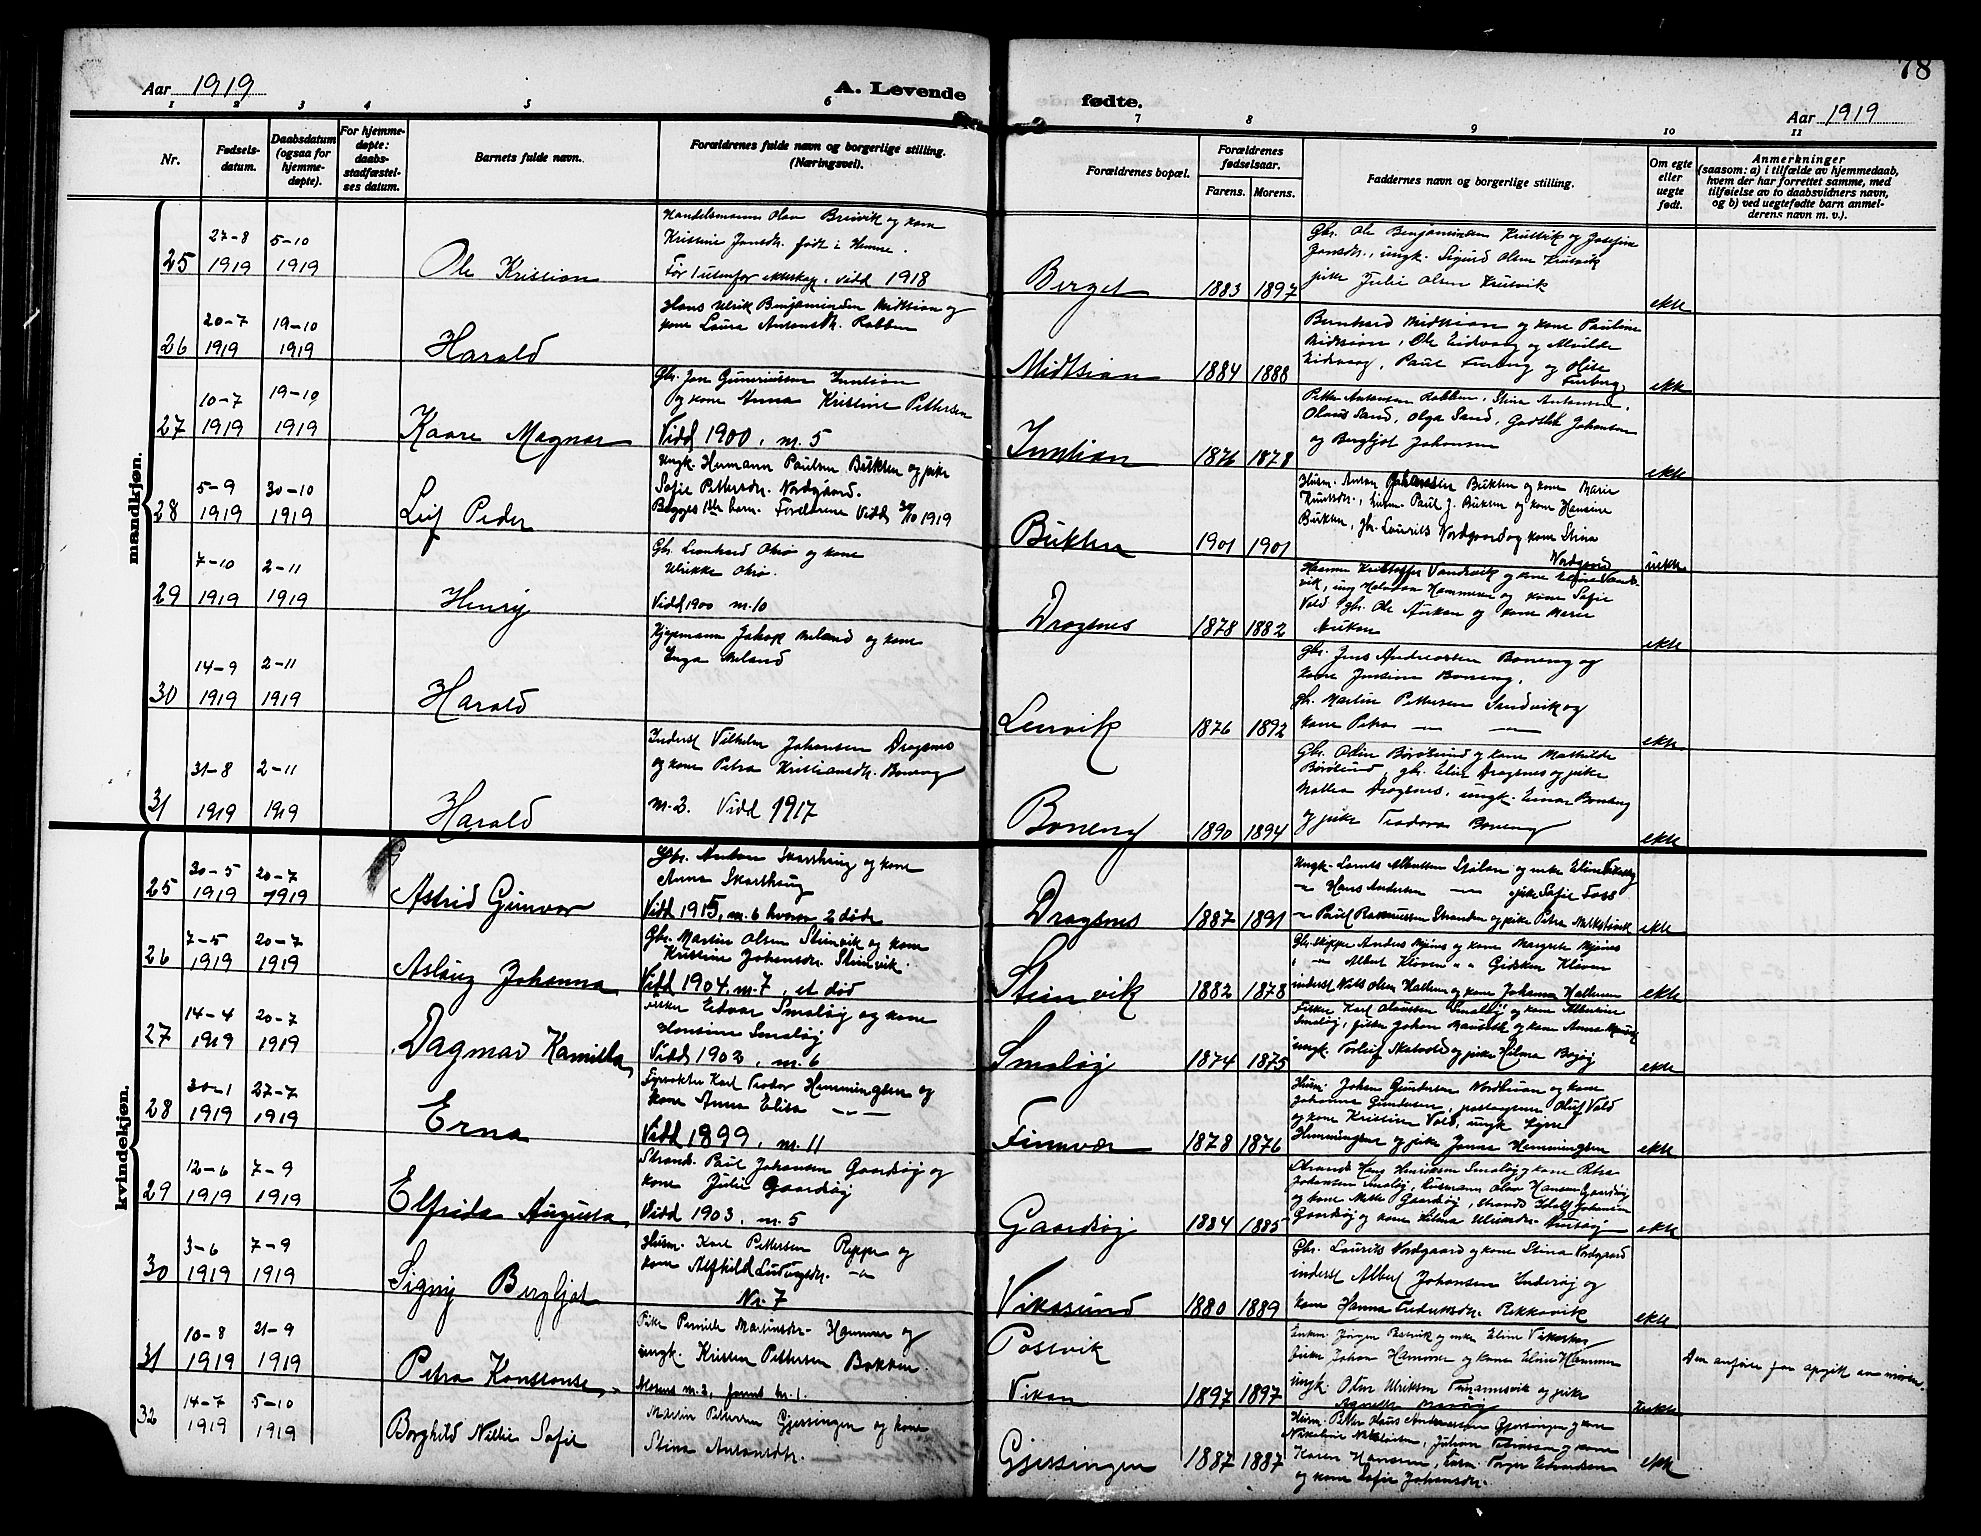 78
Aar 1919
A. Levende
fødte.
Aar 1919
1 2 3 4 5 6 7 8 9 10 11
Nr.
Fødsels-
datum.
Daabsdatum
(ogsaa for
hjemme-
døpte).
For hjemme-
døpte:
daabs-
stadfæstel-
ses datum.
Barnets fulde navn.
Forældrenes fulde navn og borgerlige stilling.
(Næringsvei).
Forældrenes bopæl.
Forældrenes
fødselsaar.
Farens. Morens.
Faddernes navn og borgerlige stilling.
Om egte
eller
uegte
født.
Anmerkninger
(saasom: a) i tilfælde av hjemmedaab,
hvem der har forrettet samme, med
tilføielse av to daabsvidners navn,
og b) ved uegtefødte barn anmel-
derens navn m. v.).
mandkjøn.
25
27-8
1919
5-10
1919
Ole Kristian
Handelsmann Olav Breivik og kone
Kristine Jonsdr. født i Hemne.
Før 1 utenfor ekteskap, vidd 1918
Berget
1883 1897
Gbr. Ole Benjaminsen Krutvik og Josefine
Jonsdr., ungk. Sigurd Olsen Krutvik
pike Julie Olsen Krutvik
ekte
26
20-7
1919
19-10
1919
Harald
Hans Ulrik Benjaminsen Midtsian og
kone Laura Antonsdr. Rabben
Midtsian
1884 1888
Bernhard Midtsian og kone Pauline
Midtsian, Ole Eidvaag og Alvilde
Eidvaag, Paul Furberg og
Furberg
ekte
27
10-7
1919
19-10
1919
Kaare Magnar
Gbr. Jon Gunerius­sen Inntian
og kone Anna Kristine Pettersen
Vidd 1900, m. 5
Inntian
1876 1878
Petter Antonsen Rabben, Stine Antonsen,
Olaus Sand, Olga Sand, Johansen
og Bergljot Johansen
ekte
28
5-9
1919
30-10
1919
Leif Peder
ungk. Hermann Paulsen Bukten og pike
Sofie Pettersdr. Nordgaard.
Begges 1ste barn. Foreldrene Vidd 30/10 1919
Bukten
1901 1901
Husm. Anton Johannesen Bukten og kone Marie
Knutsdr., husm. Paul J. Bukten og kone Hansine
Bukten, gbr. Laurits Nordgaard og kone Stina
Nordgaard
uekte
29
7-10
1919
2-11
1919
Henry
Gbr. Leonhard Ohrø og kone
Ulrikke Ohrø.
Vidd 1900 m. 10
Dragsnes
1878 1882
Kristoffer Vandvik og kone Vand-
vik, ung Hammer og kone Sofie
Vold, gbr. Ole Aukan og kone Marie
Aukan
ekte
30
14-9
1919
2-11
1919
Harald
Kjøpmann Jakob Meland og kone
Inga Meland
Lervik
1876 1892
Gbr. Jens Andreassen Boneng og
kone Justine Boneng,
gbr. Martin Pettersen Sandvik og
kone Petra — —
ekte
31
31-8
1919
2-11
1919
Harald
Inderst Vilhelm Johansen Dragsnes
og kone Petra Kristiansdr. Boneng
m. 2. Vidd 1917
Boneng
1890 1894
Gbr. Odin Børøsund og kone Mathilde
Børøsund, gbr. Elin Dragsnes og pike
Dragsnes, ungk. Einar Boneng
og pike Teodora Boneng
ekte
kvindekjøn.
25
30-5
1919
20-7
1919
Astrid Gunvor
Gbr. Anton Skarshaug og kone
Anna Skarshaug
Vidd 1915, m. 6 hvorav 2 døde
Dragsnes
1887 1891
Ungk. Albertsen Stølan og enke Eline
— Hans Andersen — pike Sofie Foss
— Paul Rasmussen Stranden og pike Petra
ekte
26
7-5
1919
20-7
1919
Aslaug Johanna
Gbr. Martin Olsen Steinvik og kone
Kristine Johansdr. Steinvik.
Vidd 1904, m. 7, et død
Steinvik
1882 1878
Gbr. skipper Anders Mjønes og kone Margrete Mjønes
— Albert Kløven — Gidsken Kløven
inderst Nils Olsen Hallaren og kone Johanna Hallaren
ekte
27
14-4
1919
20-7
1919
Dagmar Kamilla
fisker Edvar Smaløy og kone
Hansine Smaløy
Vidd 1902, m. 6
Smaløy
1874 1875
Fisker Karl Olaussen Smaløy og kone Albertine
Smaløy, fisker Johan og kone Anna
ungk. Torleif Skatvold og pike Hilma Bogøy
ekte
28
30-1
1919
27-7
1919
Erna
Fyrvokter Karl Teodor Hemmingsen og
kone Anna Elisa — —
Vidd 1899, m. 11
Finnvær
1878 1876
Husm. Johan Gundersen Nordhuan og kone
Johanna Gundersen, Oluf Vold
og kone Kristine Vold, ungk.
Hemmingsen og pike Hemmingsen
ekte
29
12-6
1919
7-9
1919
Elfrida Augusta
Strands. Paul Johansen Gaardsøy og
kone Julie Gaardsøy
Vidd 1903, m. 5
Gaardsøy
1884 1885
Strands. Hans Henriksen Smaløy og kone Petra
Johansen Smaløy, husmann Olav Hansen Gaardsøy
og kone Mette Gaardsøy, strands Johansen
Gaardsøy og kone Hilma
ekte
30
3-6
1919
7-9
1919
Signy Bergljot
Husm. Karl Pettersen Reppe og
kone Alfhild Ludvigsdr. —
Nr. 7
Vikasund
1880 1889
Gbr. Laurits Nordgaard og kone Stina Nordgaard
inderst Albert Johansen Inderøy og
kone Hanna Fredriksdr. Rekkavik
ekte
31
10-8
1919
21-9
1919
Petra Konstanse
Pike Pernille Martinsdr. Hammer og
ungk. Kristen Pettersen Bakken.
Morens nr. 2, farens nr. 1.
Postvik
Vikan
1897 1897
Enkem. Jørgen og enke Eline
fisker Johan Hammer og kone Eline Hammer
ungk. Odin Ulriksen og pike
uekte
Den anførte far opgitt av moren.
32
14-7
1919
5-10
1919
Borghild Nillie Sofie
Martin Pettersen Gjessingen og kone
Stina Antonsdtr.
Gjessingen
1887 1887
Husm. Petter Olaus Andreassen Gjessingen og kone
Nikoline, Johan og kone
Karen Hansen, husm. Torger Edvardsen
og kone Sofie Johansdr.
ekte